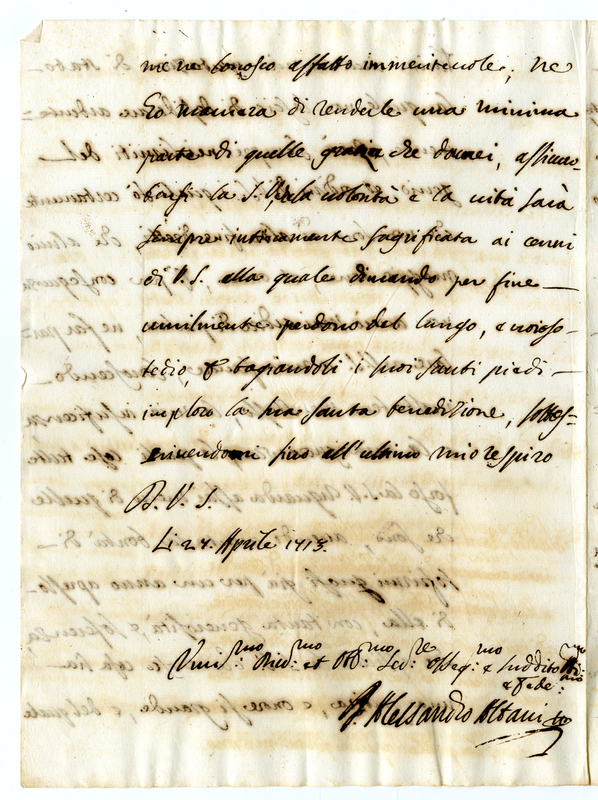 me ne conosco affatto immeritevole; ne
ho maniera di renderle una minima
parte di quelle grazie che dovrei, assicuro-
la S. V. la volontà e la vita sarà
sempre intieramente sagrificata ai cenni
di V. S. alla quale dimando per fine
umilmente perdono del lungo, e noioso
tedio, e bagiandoli i suoi santi piedi
imploro la sua santa benedizione, sottos-
crivendomi fino all'ultimo mio respiro
D. V. S.
Li 24 Aprile 1713.
Umil:mo Div:mo et Obb:mo Ser:re Osseq:mo e suddito
e fede:
Alessandro Albani